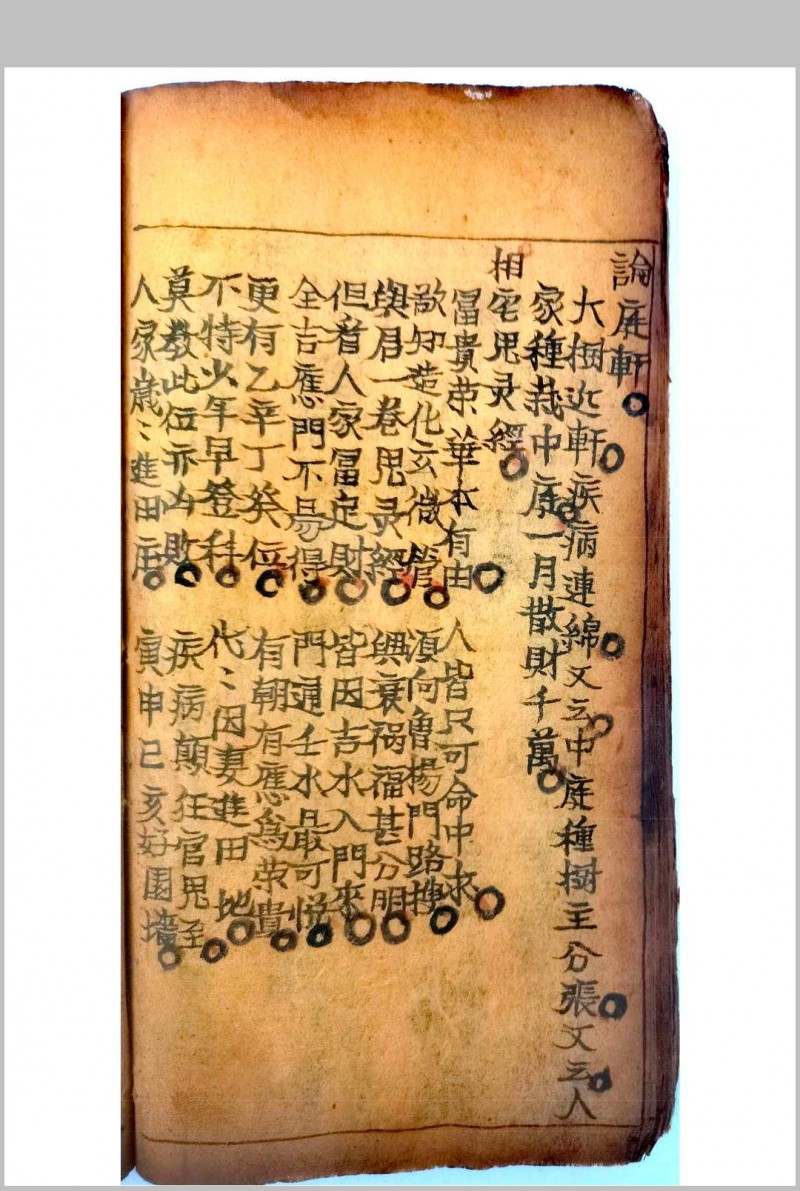 論庭軒
大樹近軒疾病連綿又云中庭種樹主分張又云人
家種栽中庭一月散財千萬
相宅鬼灵經
冨貴荣華本有由 人皆只可命中求
欲知造化玄微管 須向魯揚門路搜
與君一卷鬼灵經 興衰祸福甚分明
但看人家冨足財 皆因吉水入門來
全吉應門不易得 門通壬水最可悦
更有乙辛丁癸位 有朝有應為荣貴
不特少年早登科 代〻因妻進田地
莫教此位亦凶敗 疾病顛狂官鬼至
人家歲〻進田庄 寅申巳亥好園墻